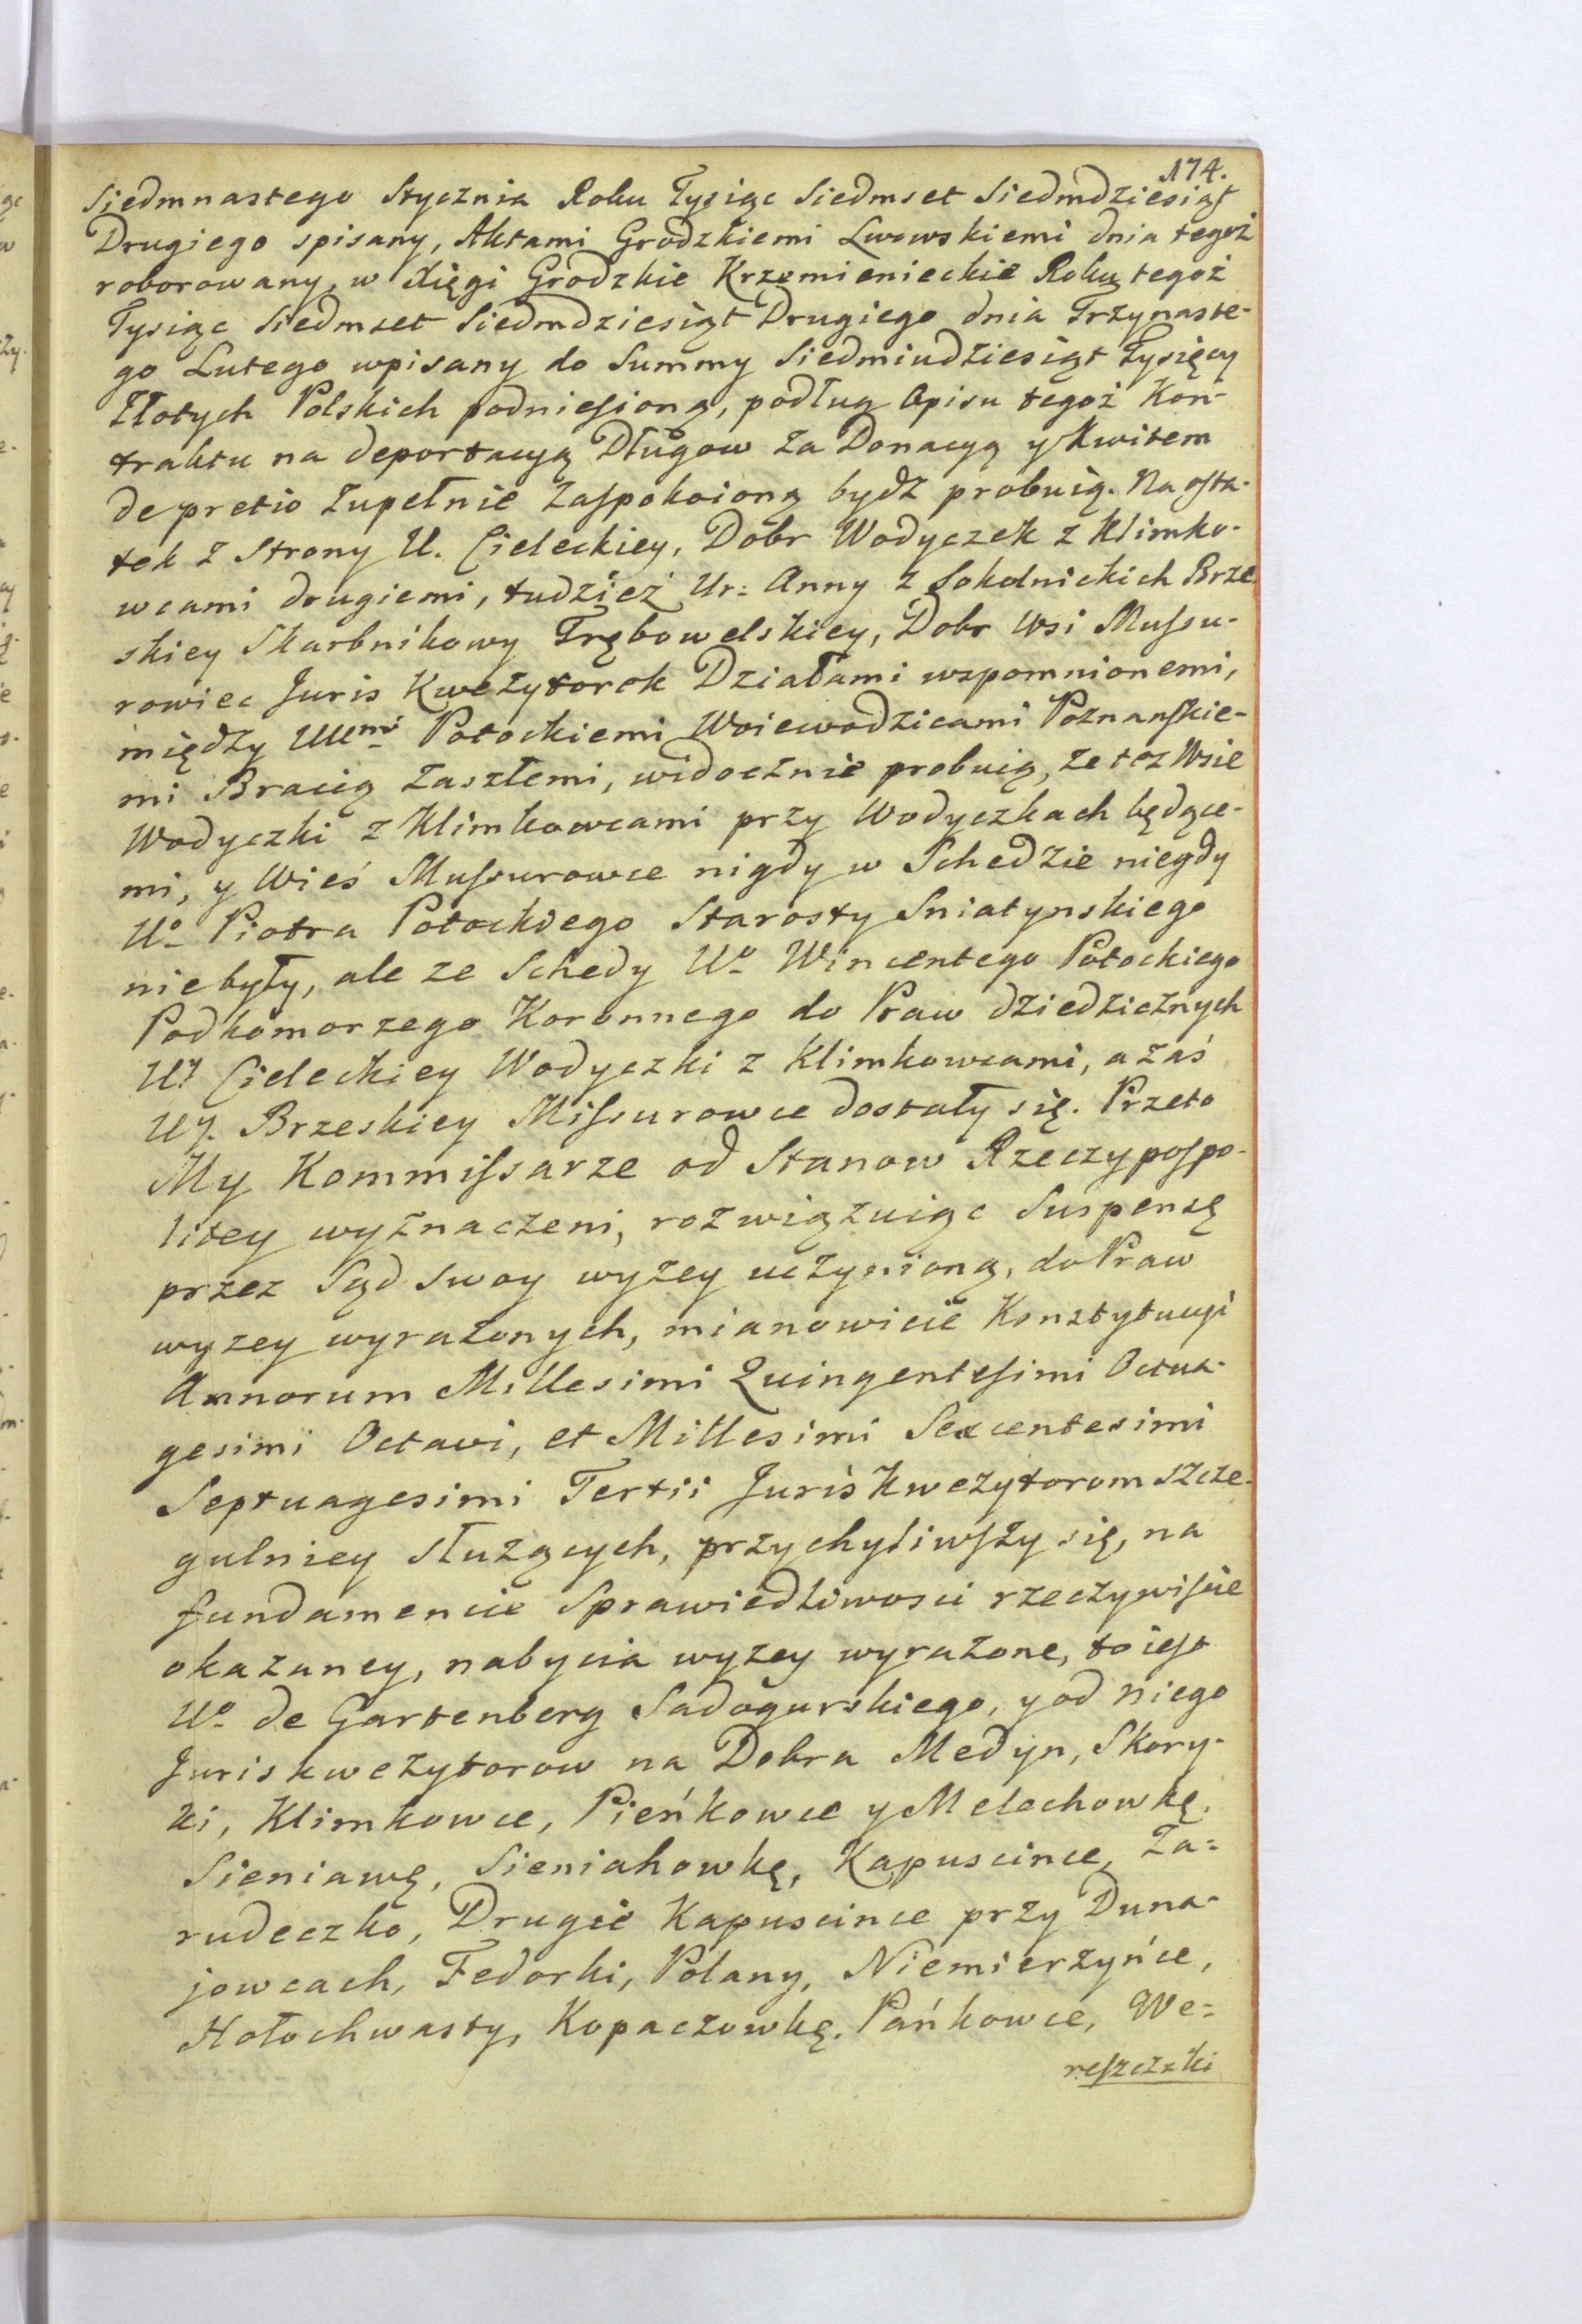 174.
Siedmnastego Stycznia Roku Tysiąc Siedmset Siedmdziesiąt
Drugiego spisany, Aktami Grodzkiemi Lwowskiemi dnia tegoż
roborowany, w Xięgi Grodzkie Krzemienieckie Roku tegoż
Tysiąc Siedmset Siedmdziesiąt Drugiego dnia Trzynaste-
go Lutego wpisany do Summy Siedmiudziesiąt Tysięcy
Złotych Polskich podniesioną, podług Opisu tegoż Kon-
traktu na deportacyą Długow za Donacyą y Kwitem
de pretio zupełnie zaspokoioną bydz probuią. Na osta-
tek z Strony U. Cieleckiey, Dobr Wodyczek z Klimko-
wcami drugiemi, tudzież Ur: Anny z Sokolnickich Brze
skiey Skarbnikowy Trębowelskiey, Dobr Wsi Mussu-
rowiec Juris Kwezytorek Działami wspomnionemi,
między UUmi Potockiemi Woiewodzicami Poznanskie-
mi Bracią zaszłemi, widocznie probuią, że też Wsie
Wodyczki z Klimkowcami przy Wodyczkach będące-
mi, y Wieś Mussurowce nigdy w Schedzie niegdy
Uo Piotra Potockiego Starosty Sniatynskiego
nie były, ale ze Schedy Uo Wincentego Potockiego
Podkomorzego Koronnego do Praw dziedzicznych
Uy Cieleckiey Wodyczki z Klimkowcami, a zaś
Uy. Brzeskiey Missurowce dostały się. Przeto
My Kommissarze od Stanow Rzeczypospo-
litey wyznaczeni, rozwiązuiąc Suspensę
przez Sąd swoy wyżey uczynioną, do Praw
wyzey wyrażonych, mianowicie Konstytucyi
Annorum Millesimi Quingentesimi Octua-
gesimi Octavi, et Millesimi Sexcentesimi
Septuagesimi Tertii Juris Kwezytorom szcze-
gulniey służących, przychyliwszy się, na
fundamencie Sprawiedliwosci rzeczywiscie
okazaney, nabycia wyzey wyrażone, to iest
Uo de Gartenberg Sadogurskiego, y od niego
Juriskwezytorow na Dobra Medyn, Skory-
ki, Klimkowce, Pieńkowce y Melechowkę,
Sieniawę, Sieniahowkę, Kapuscince, Za=
rudeczko, Drugie Kapuscince przy Duna-
jowcach, Fedorki, Polany, Niemierzyńce,
Hołochwasty, Kopaczowkę, Pańkowce, We=
reszczzki